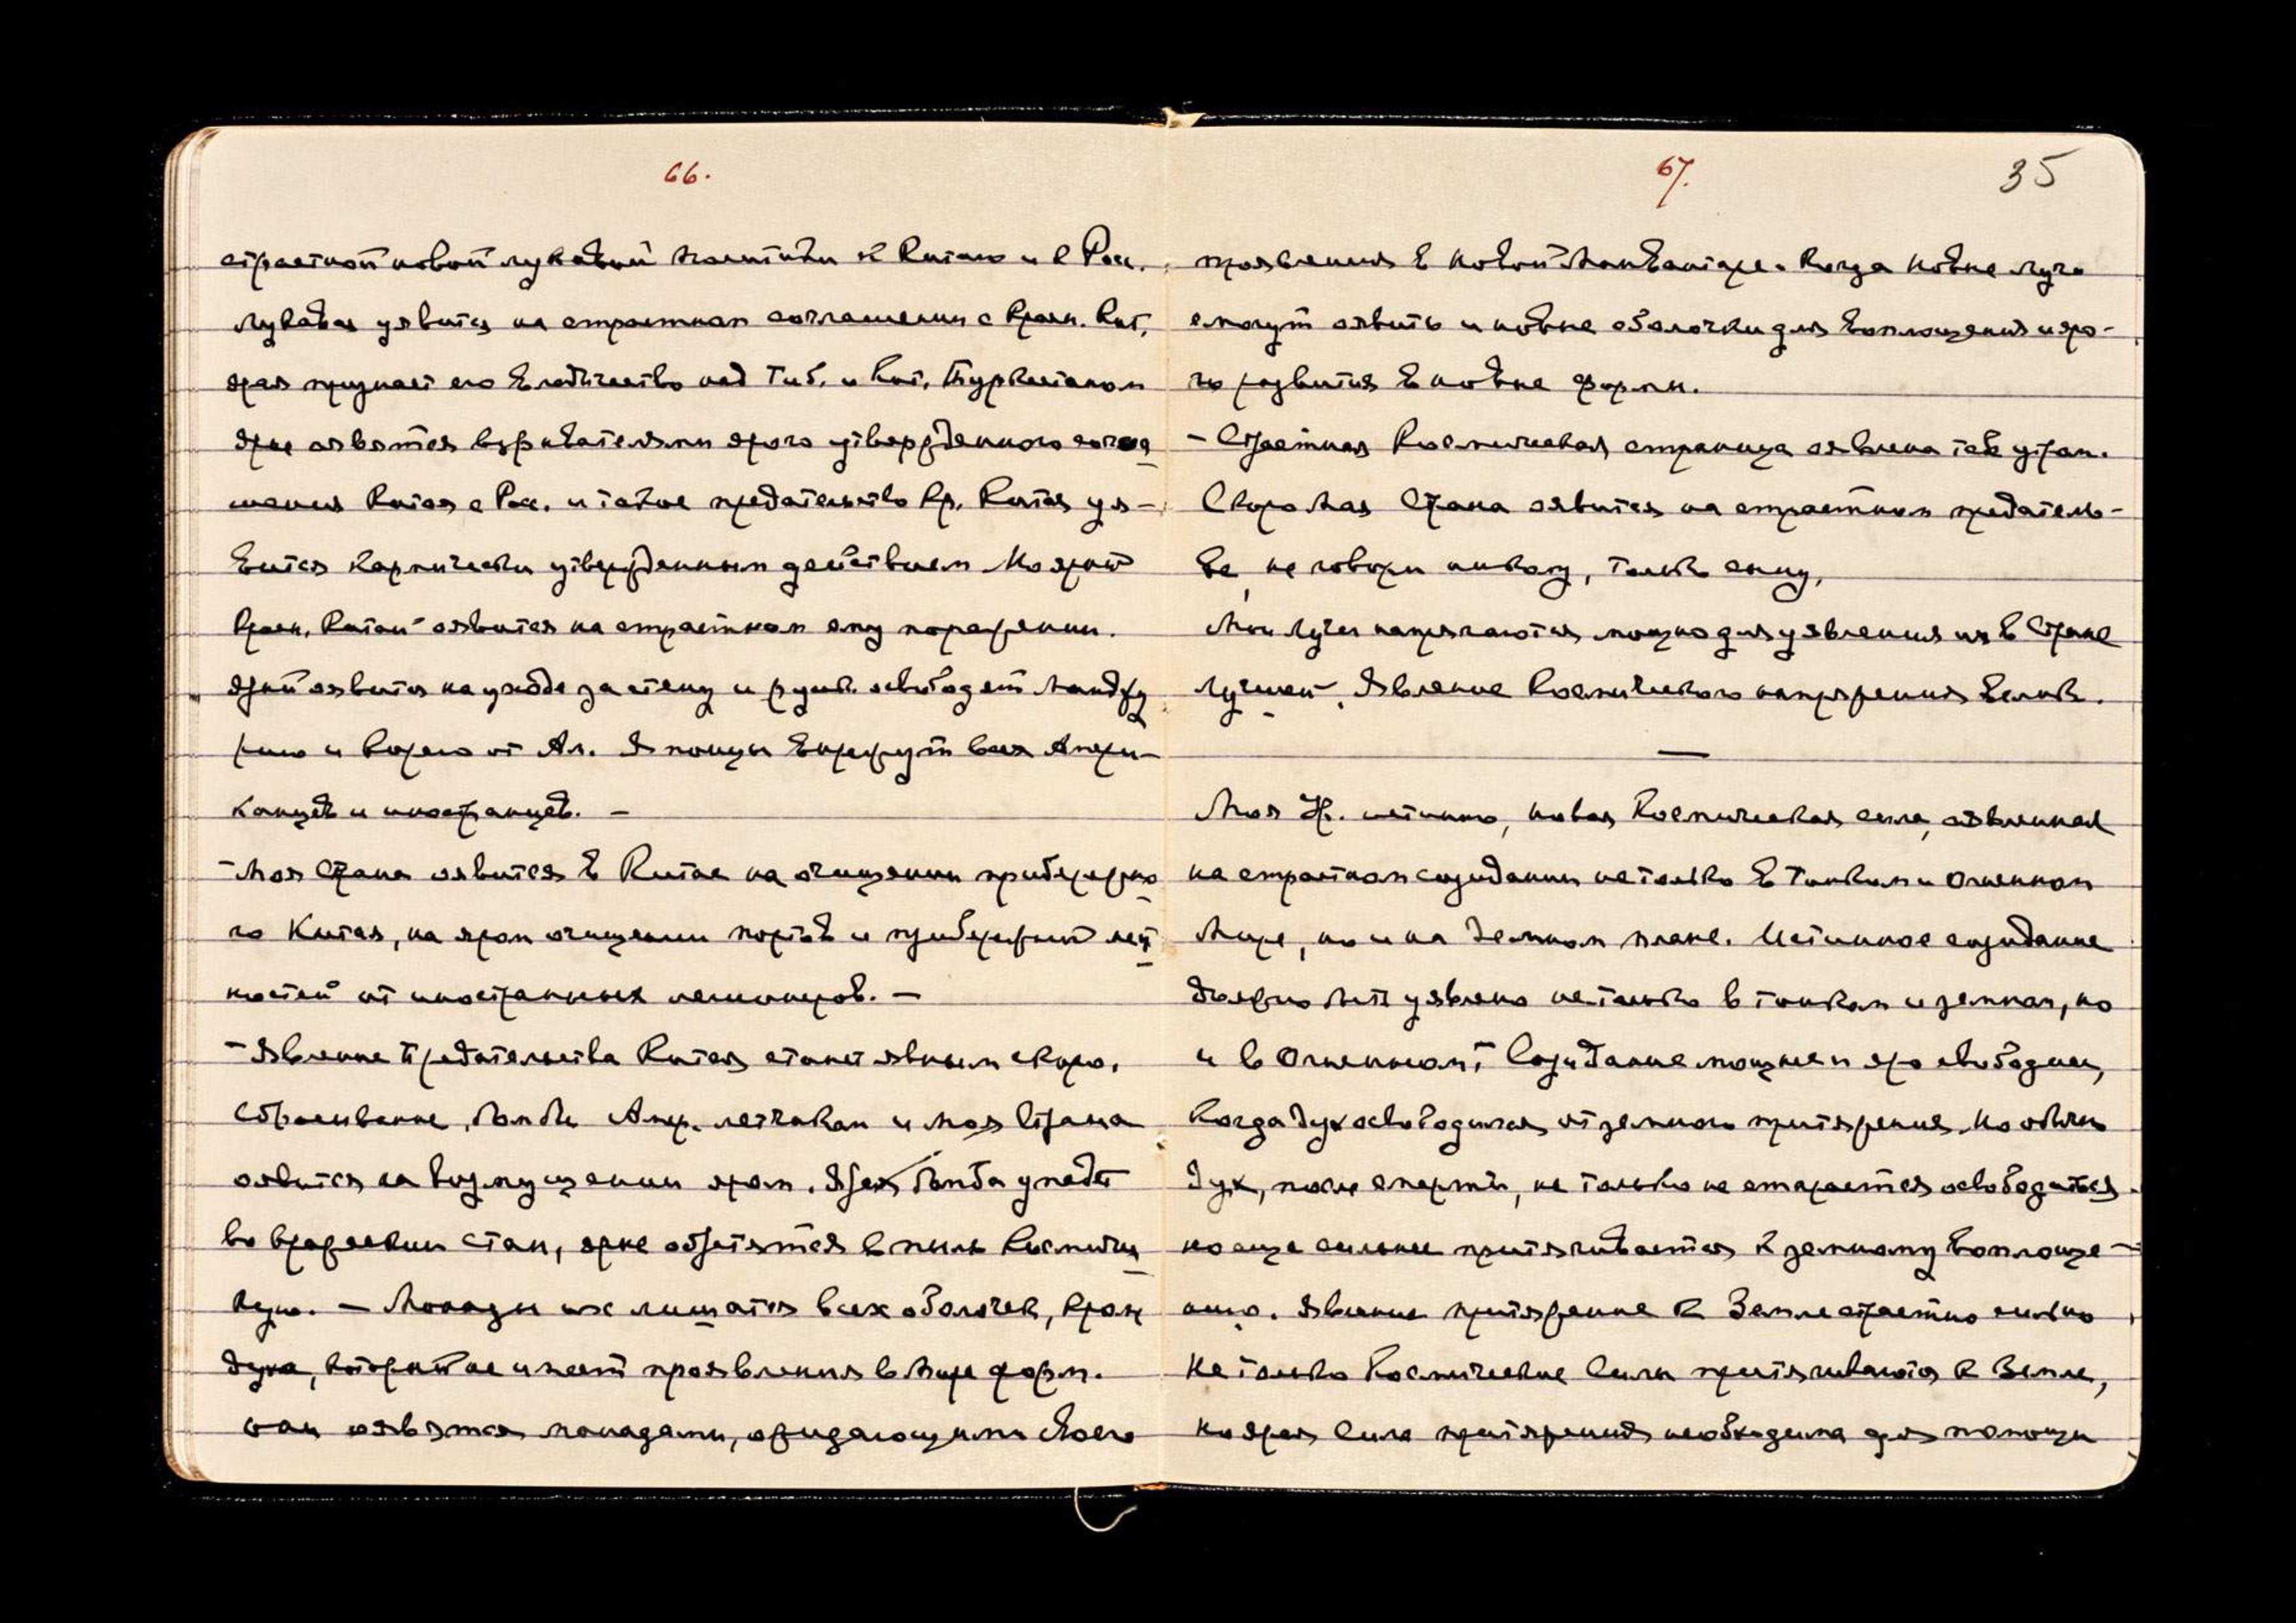 66.
страстной новой лукавой политики к Китаю и к Росс.
Лукавая уявится на страстном соглашении с Красн. Кит.,
ярая признает его владычество над Тиб. и Кит. Туркестаном
ярые оявятся взрывателями ярого утвержденного согла
шения Китая с Росс. и такое предательство Кр. Китая уя-
вится кармически утвержденным действием. Но ярый
Красн. Китай оявится на страстном ему поражении.
Ярый оявится на уходе за стену и русск. освободят Манджу
рию и Корею от Ам. Японцы вырежут всех Амери-
канцев и иностранцев. -
- Моя Страна оявится в Китае на очищении прибережно
го Китая, на яром очищении портов и прибрежной мест
ностей от иностранных                .-
- Явление Предательства Китая станет явным скоро.
Сбрасывание бомбы Амер. летчикам и моя Страна
оявится на возмущении яром. Ярая бомба упадет
во вражеский стан, ярые обратятся в пыль Космичес
кую. - Монады их лишатся всех оболочек, кроме
духа, который не имеет проявления в Мире форм.
они оявятся монадами, ожидающими своего
67.
35
проявления в новой Манвантаре. Когда новые лучи
смогут оявить и новые оболочки для воплощения и яро-
го развития в новые формы.
- Страстная Космическая страница оявлена тебе утром.
Скоро Моя Страна оявится на страстном предатель-
ве, не говори никому, только сыну.
Мои Лучи напрягаются мощно для уявления их в Стране
Лучшей. Явление Космического напряжения велико.
—
Моя Н. истинно, новая Космическая сила, оявленная
на страстном созидании не только в Тонком и Огненном
Мире, но и на Земном плане. Истинное созидание
должно быть уявлено не только в тонком и земном, но
и в Огненном. Созидание мощнее и яро свободнее,
когда дух освободился от земного притяжения. Но обычно
дух, после смерти, не только не старается освободиться
но еще сильнее притягивается к земному воплоще-
нию. Явление притяжение к Земле страстно сильно
Не только Космические Силы притягиваются к Земле,
но ярая Сила притяжения необходима для помощи